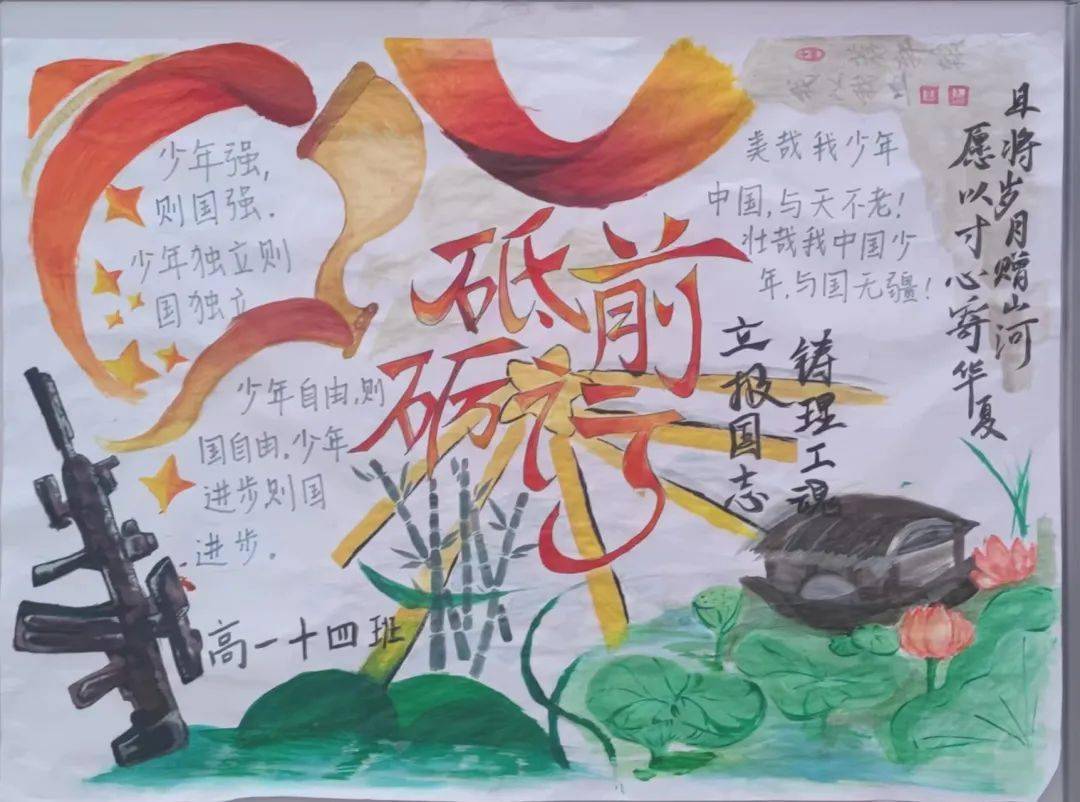 少年强,
则国强.
少年独立则
国独立
少年自由,则
国自由.少年
进步则国
进步。
高一十四班
砥前
砺行
美哉我少年
中国,与天不老!
壮哉我中国少
年,与国无疆!
且将岁月赠山河
愿以寸心寄华夏
铸理工魂
立报国志
我以我